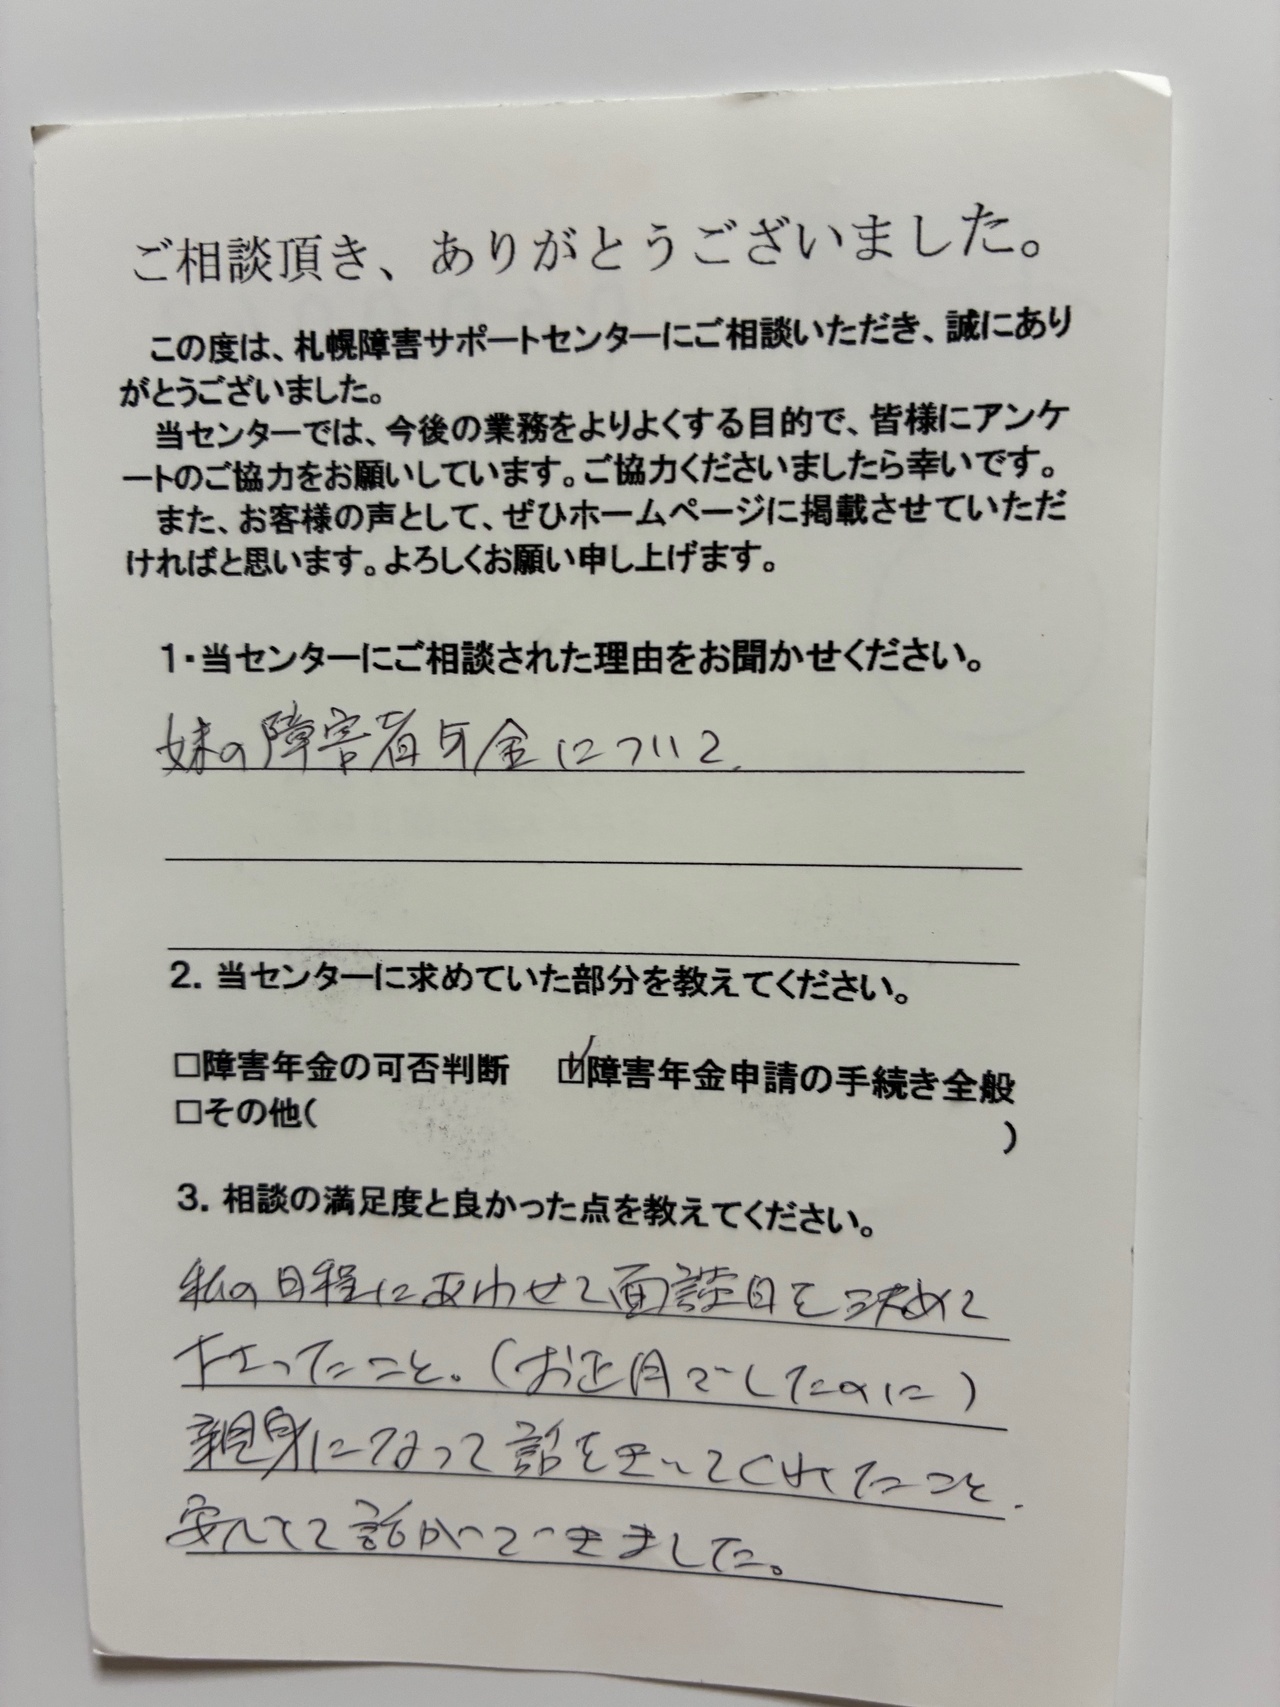 ご相談頂き、ありがとうございました。
この度は、札幌障害サポートセンターにご相談いただき、誠にあり
がとうございました。
当センターでは、今後の業務をよりよくする目的で、皆様にアンケ
ートのご協力をお願いしています。ご協力くださいましたら幸いです。
また、お客様の声として、ぜひホームページに掲載させていただ
ければと思います。よろしくお願い申し上げます。
1・当センターにご相談された理由をお聞かせください。
妹の障害者年金について.
2. 当センターに求めていた部分を教えてください。
□障害年金の可否判断 ☑障害年金申請の手続き全般
□その他( )
3. 相談の満足度と良かった点を教えてください。
私の日程にあわせて面談日を決めて
下さったこと。(お正月でしたのに)
親身になって話をきいてくれたこと.
安心して話ができました。